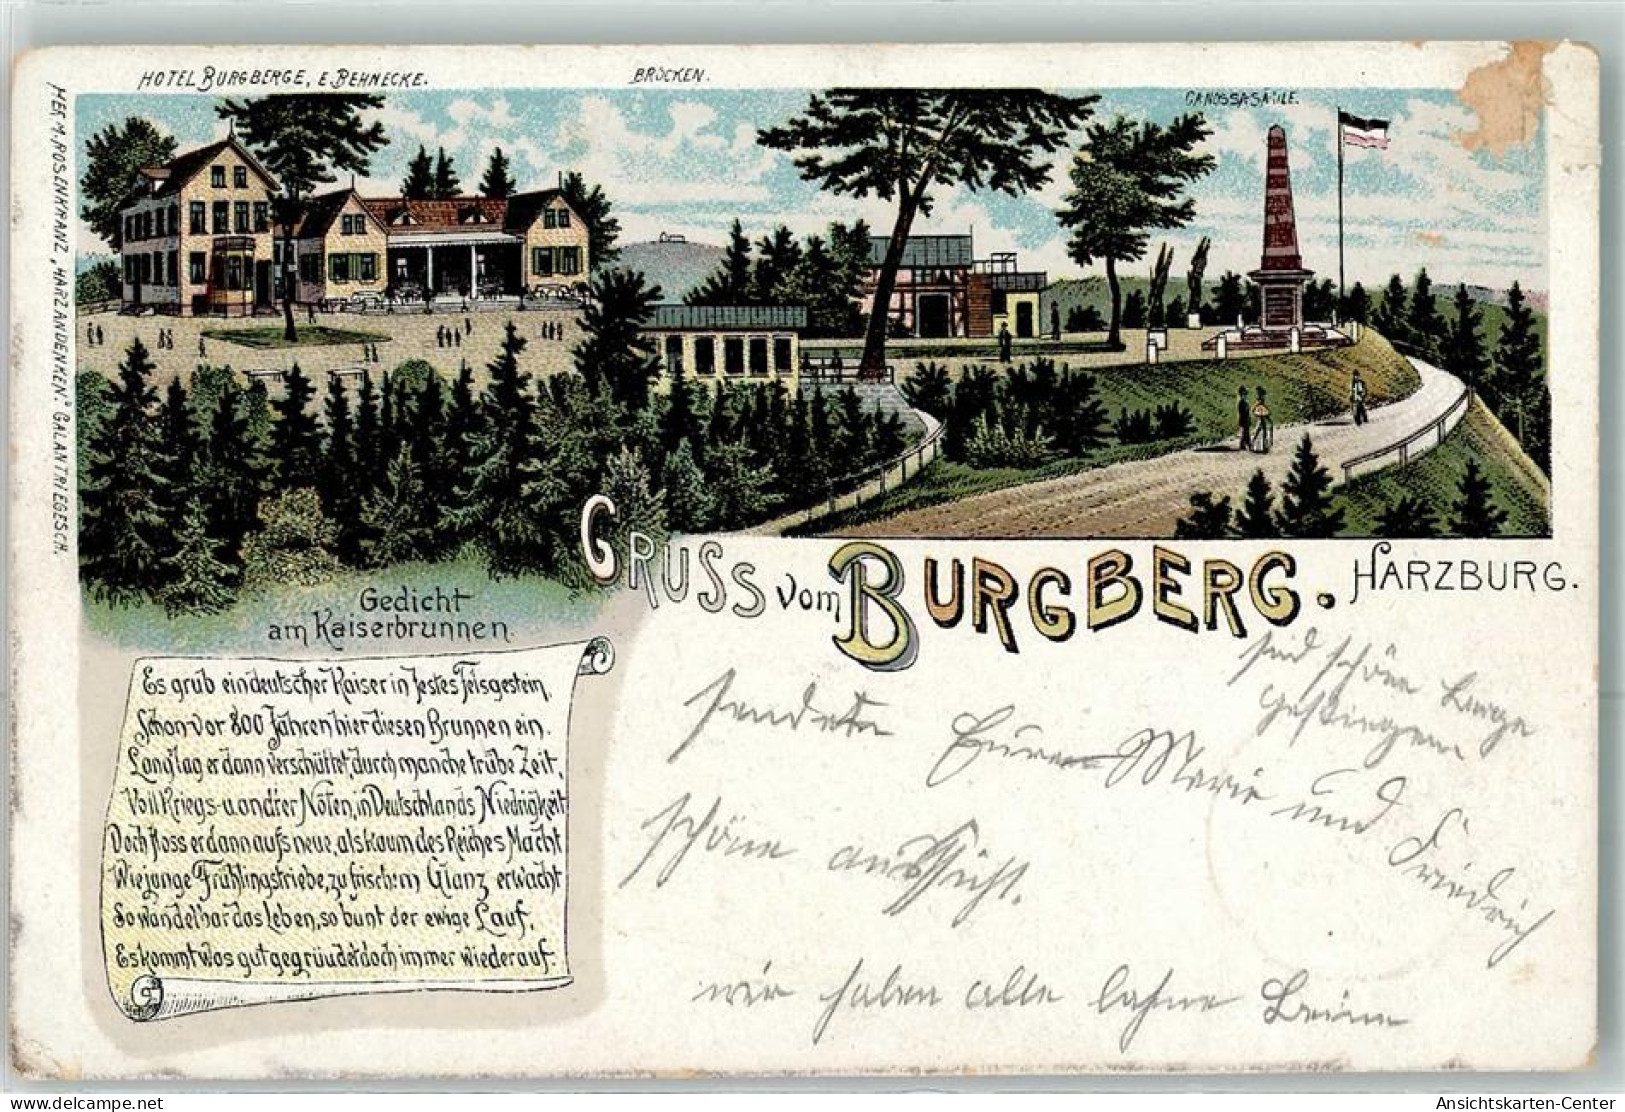 HOTEL BURGBERGE, E. BEHNECKE.
BROCKEN.
CANOSSASÄULE.
HERM. ROSENKRANZ „HARZANDENKEN." GALANTRIEGESCH.
GRUSS vom BURGBERG. HARZBURG.
Gedicht
am Kaiserbrunnen
Es grub ein deutscher Kaiser in festes Felsgestein,
Schon vor 800 Jahren hier diesen Brunnen ein.
Lang lag er dann verschüttet, durch manche trübe Zeit,
Voll Kriegs- u. andrer Nöten, in Deutschlands Niedrigkeit
Doch floss er dann aufs neue, als kaum des Reiches Macht
Wie junge Frühlingstriebe, zu frischem Glanz erwacht
So wandelbar das Leben, so bunt der ewige Lauf,
Es kommt was gut gegründet doch immer wieder auf.
sind schön Berge
gestiegen
sendete Eure Marie und Friedrich
schöne aussicht.
wir haben alle lahme Beine